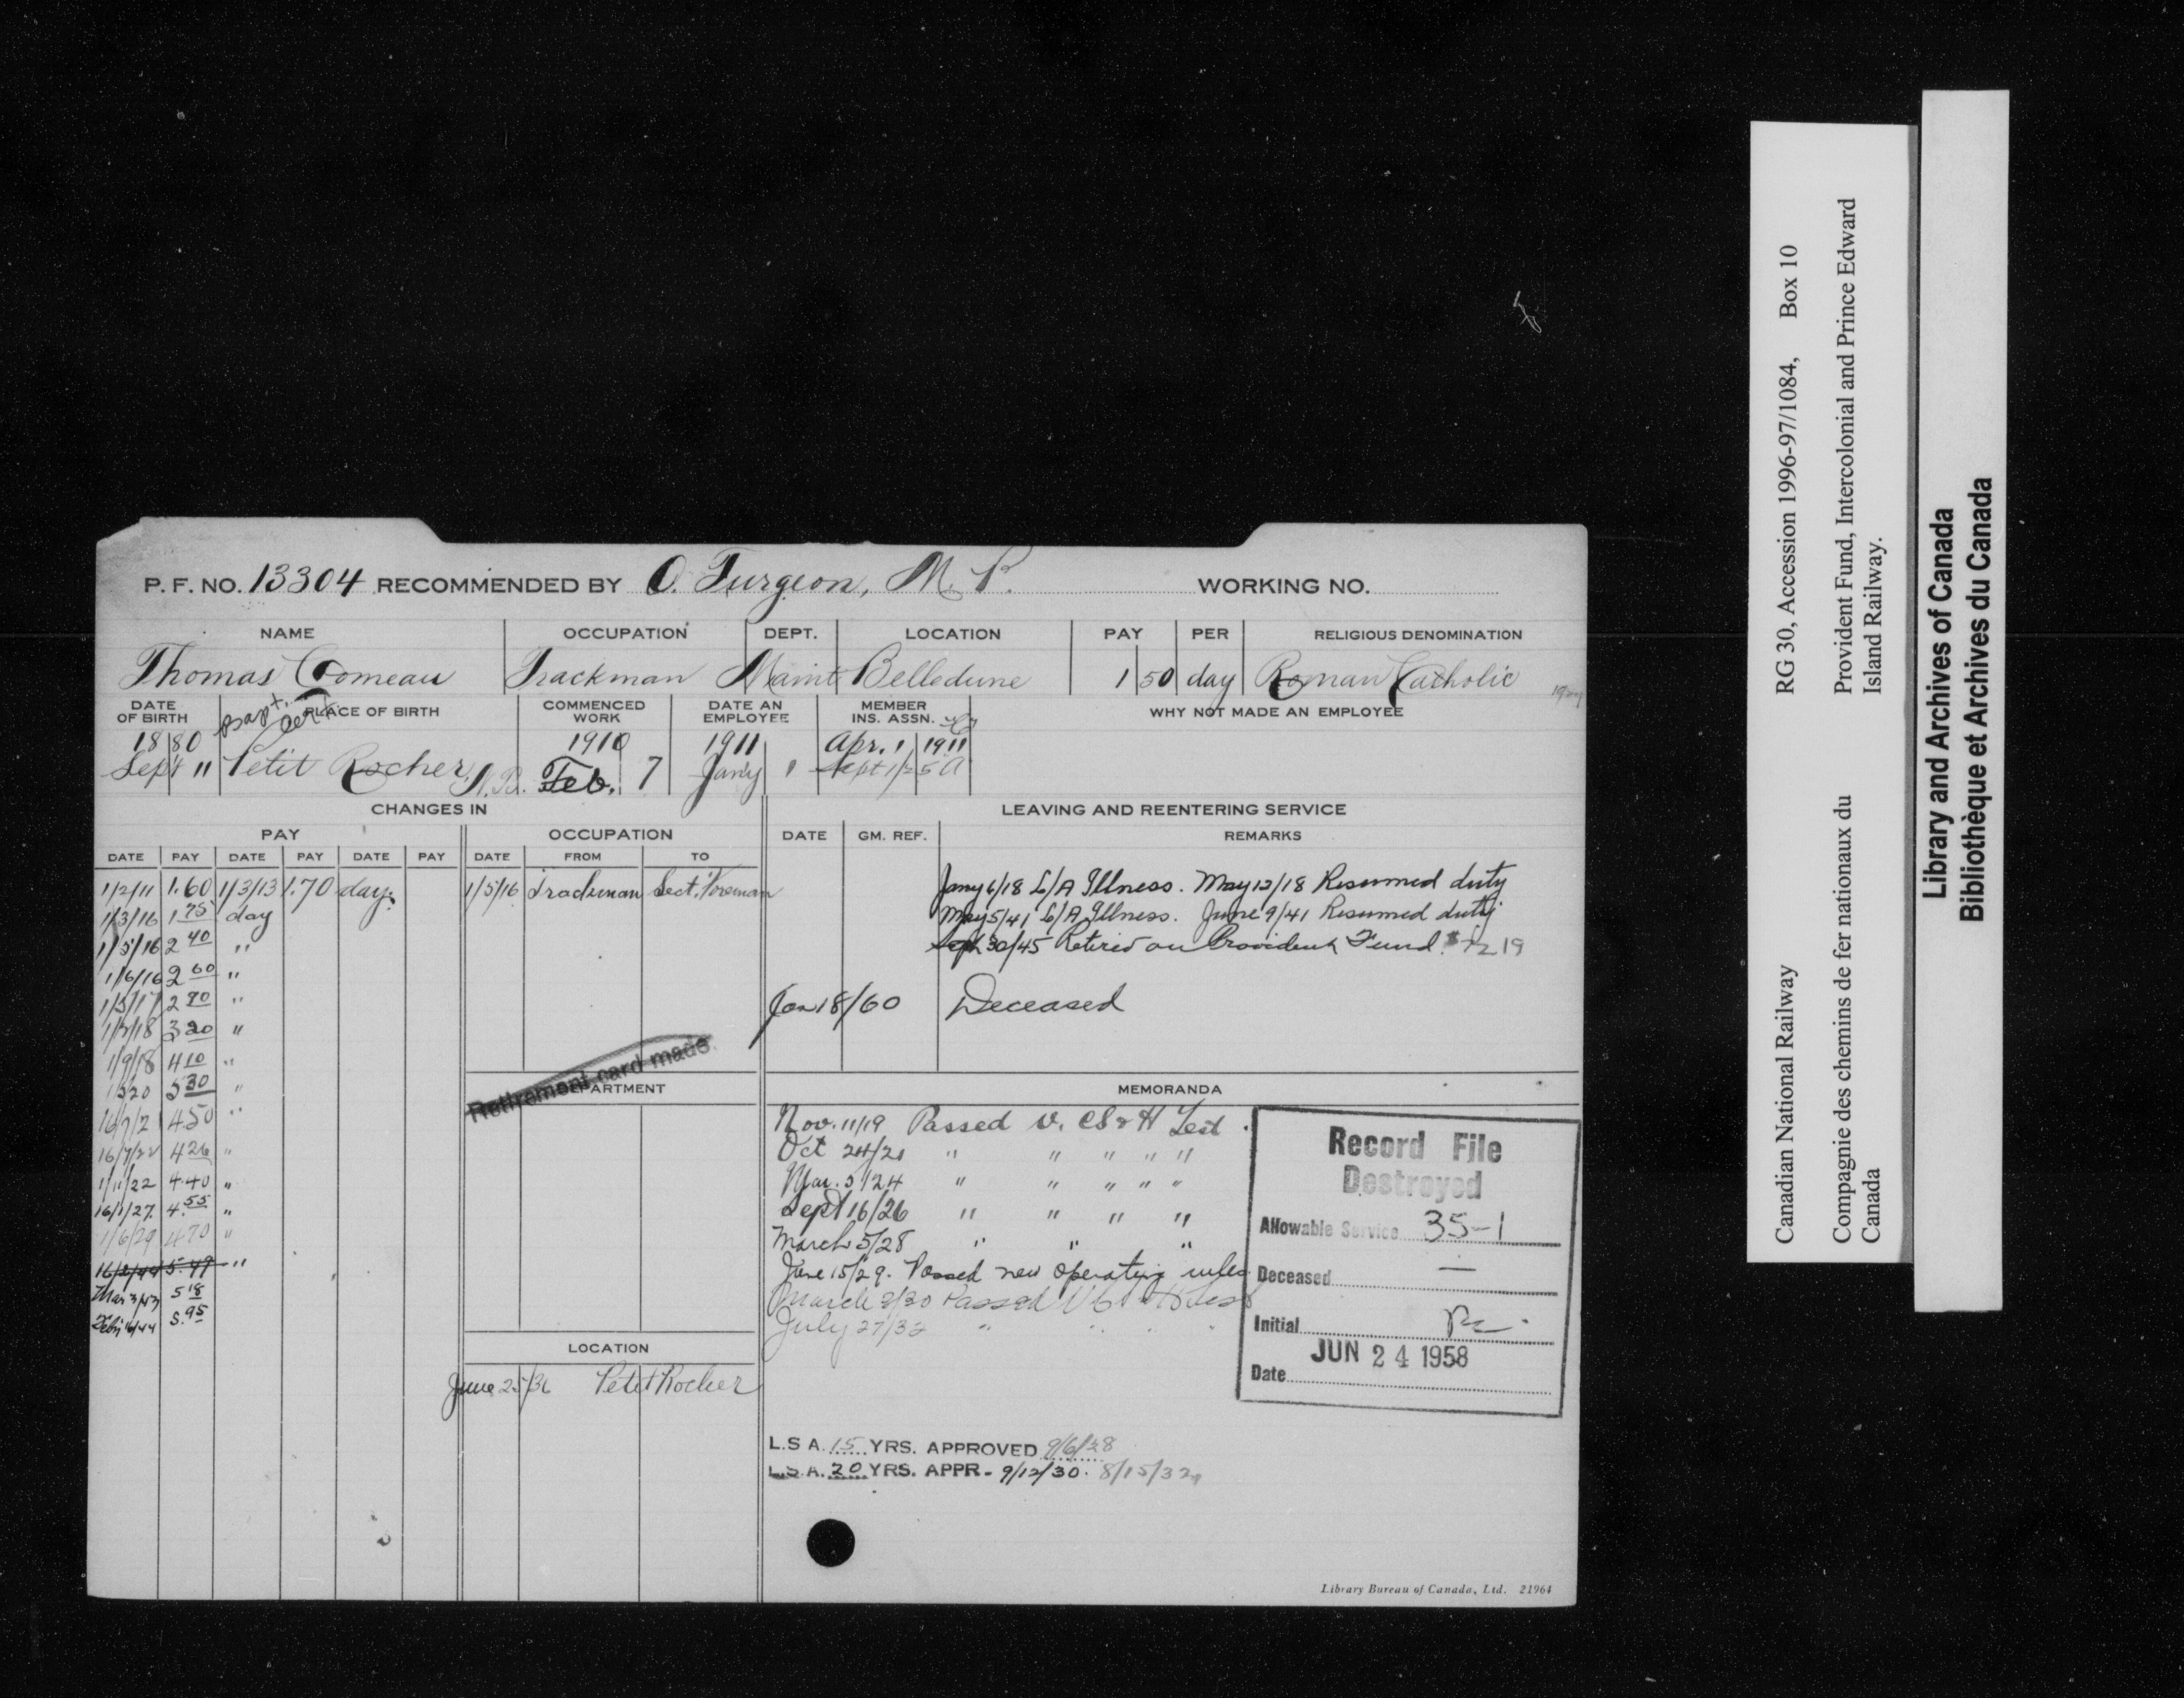 P. F. NO. 13304 RECOMMENDED BY O. Turgeon, M. P. WORKING NO.
NAME OCCUPATION DEPT. LOCATION PAY PER RELIGIOUS DENOMINATION
Thomas Comeau Trackman Maint Belledune 1 50 day Roman Catholic
DATE OF BIRTH PLACE OF BIRTH COMMENCED WORK DATE AN EMPLOYEE MEMBER INS. ASSN. WHY NOT MADE AN EMPLOYEE
Bapt. Cert.
1880 1910 1911 Apr. 1 1911
Sept 11 Petit Rocher, N.B. Feb. 7 Jan'y 1 Sept 1/25 A
CHANGES IN
PAY OCCUPATION
DATE PAY DATE PAY DATE PAY DATE FROM TO
1/2/11 1.60 1/3/13 1.70 day. 1/5/16 Trackman Sect. Foreman
1/3/16 1 75 day
1/5/16 2 40 "
1/6/16 2 60 "
1/5/17 2 90 "
3 20 "
1/9/18 4 10 "
5 30 "
16/7/21 4.50 "
16/7/22 4 26 "
1/11/22 4.40 "
16/1/27. 4.55 "
1/6/29 4 70 "
16/2/44 5.49 "
Mar 3/43 5 18
Feby 16/44 5.95
Retirement card made.
DEPARTMENT
LOCATION
June 25/36 Petit Rocher
LEAVING AND REENTERING SERVICE
DATE GM. REF. REMARKS
Jany 6/18 L/A Illness. May 12/18 Resumed duty
May 5/41 L/A Illness. June 9/41 Resumed duty
Sept 30/45 Retired on Provident Fund. $72 19
Jan 18/60 Deceased
MEMORANDA
Nov. 11/19 Passed V. CS & H Test.
Oct 24/21 " " " " "
Mar. 5/24 " " " " "
Sept 16/26 " " " "
March 5/28 " " "
June 15/29. Passed new operating rules
March 8/30 Passed V C S & H Test
July 27/32 " " " "
Record File
Destroyed
Allowable Service 35-1
Deceased —
Initial
JUN 24 1958
Date
L.S A. 15 YRS. APPROVED 9/6/28
L.S.A. 20 YRS. APPR- 9/12/30. 8/15/32
Library Bureau of Canada, Ltd. 21964
Canadian National Railway RG 30, Accession 1996-97/1084, Box 10
Compagnie des chemins de fer nationaux du Provident Fund, Intercolonial and Prince Edward
Canada Island Railway.
Library and Archives of Canada
Bibliothèque et Archives du Canada